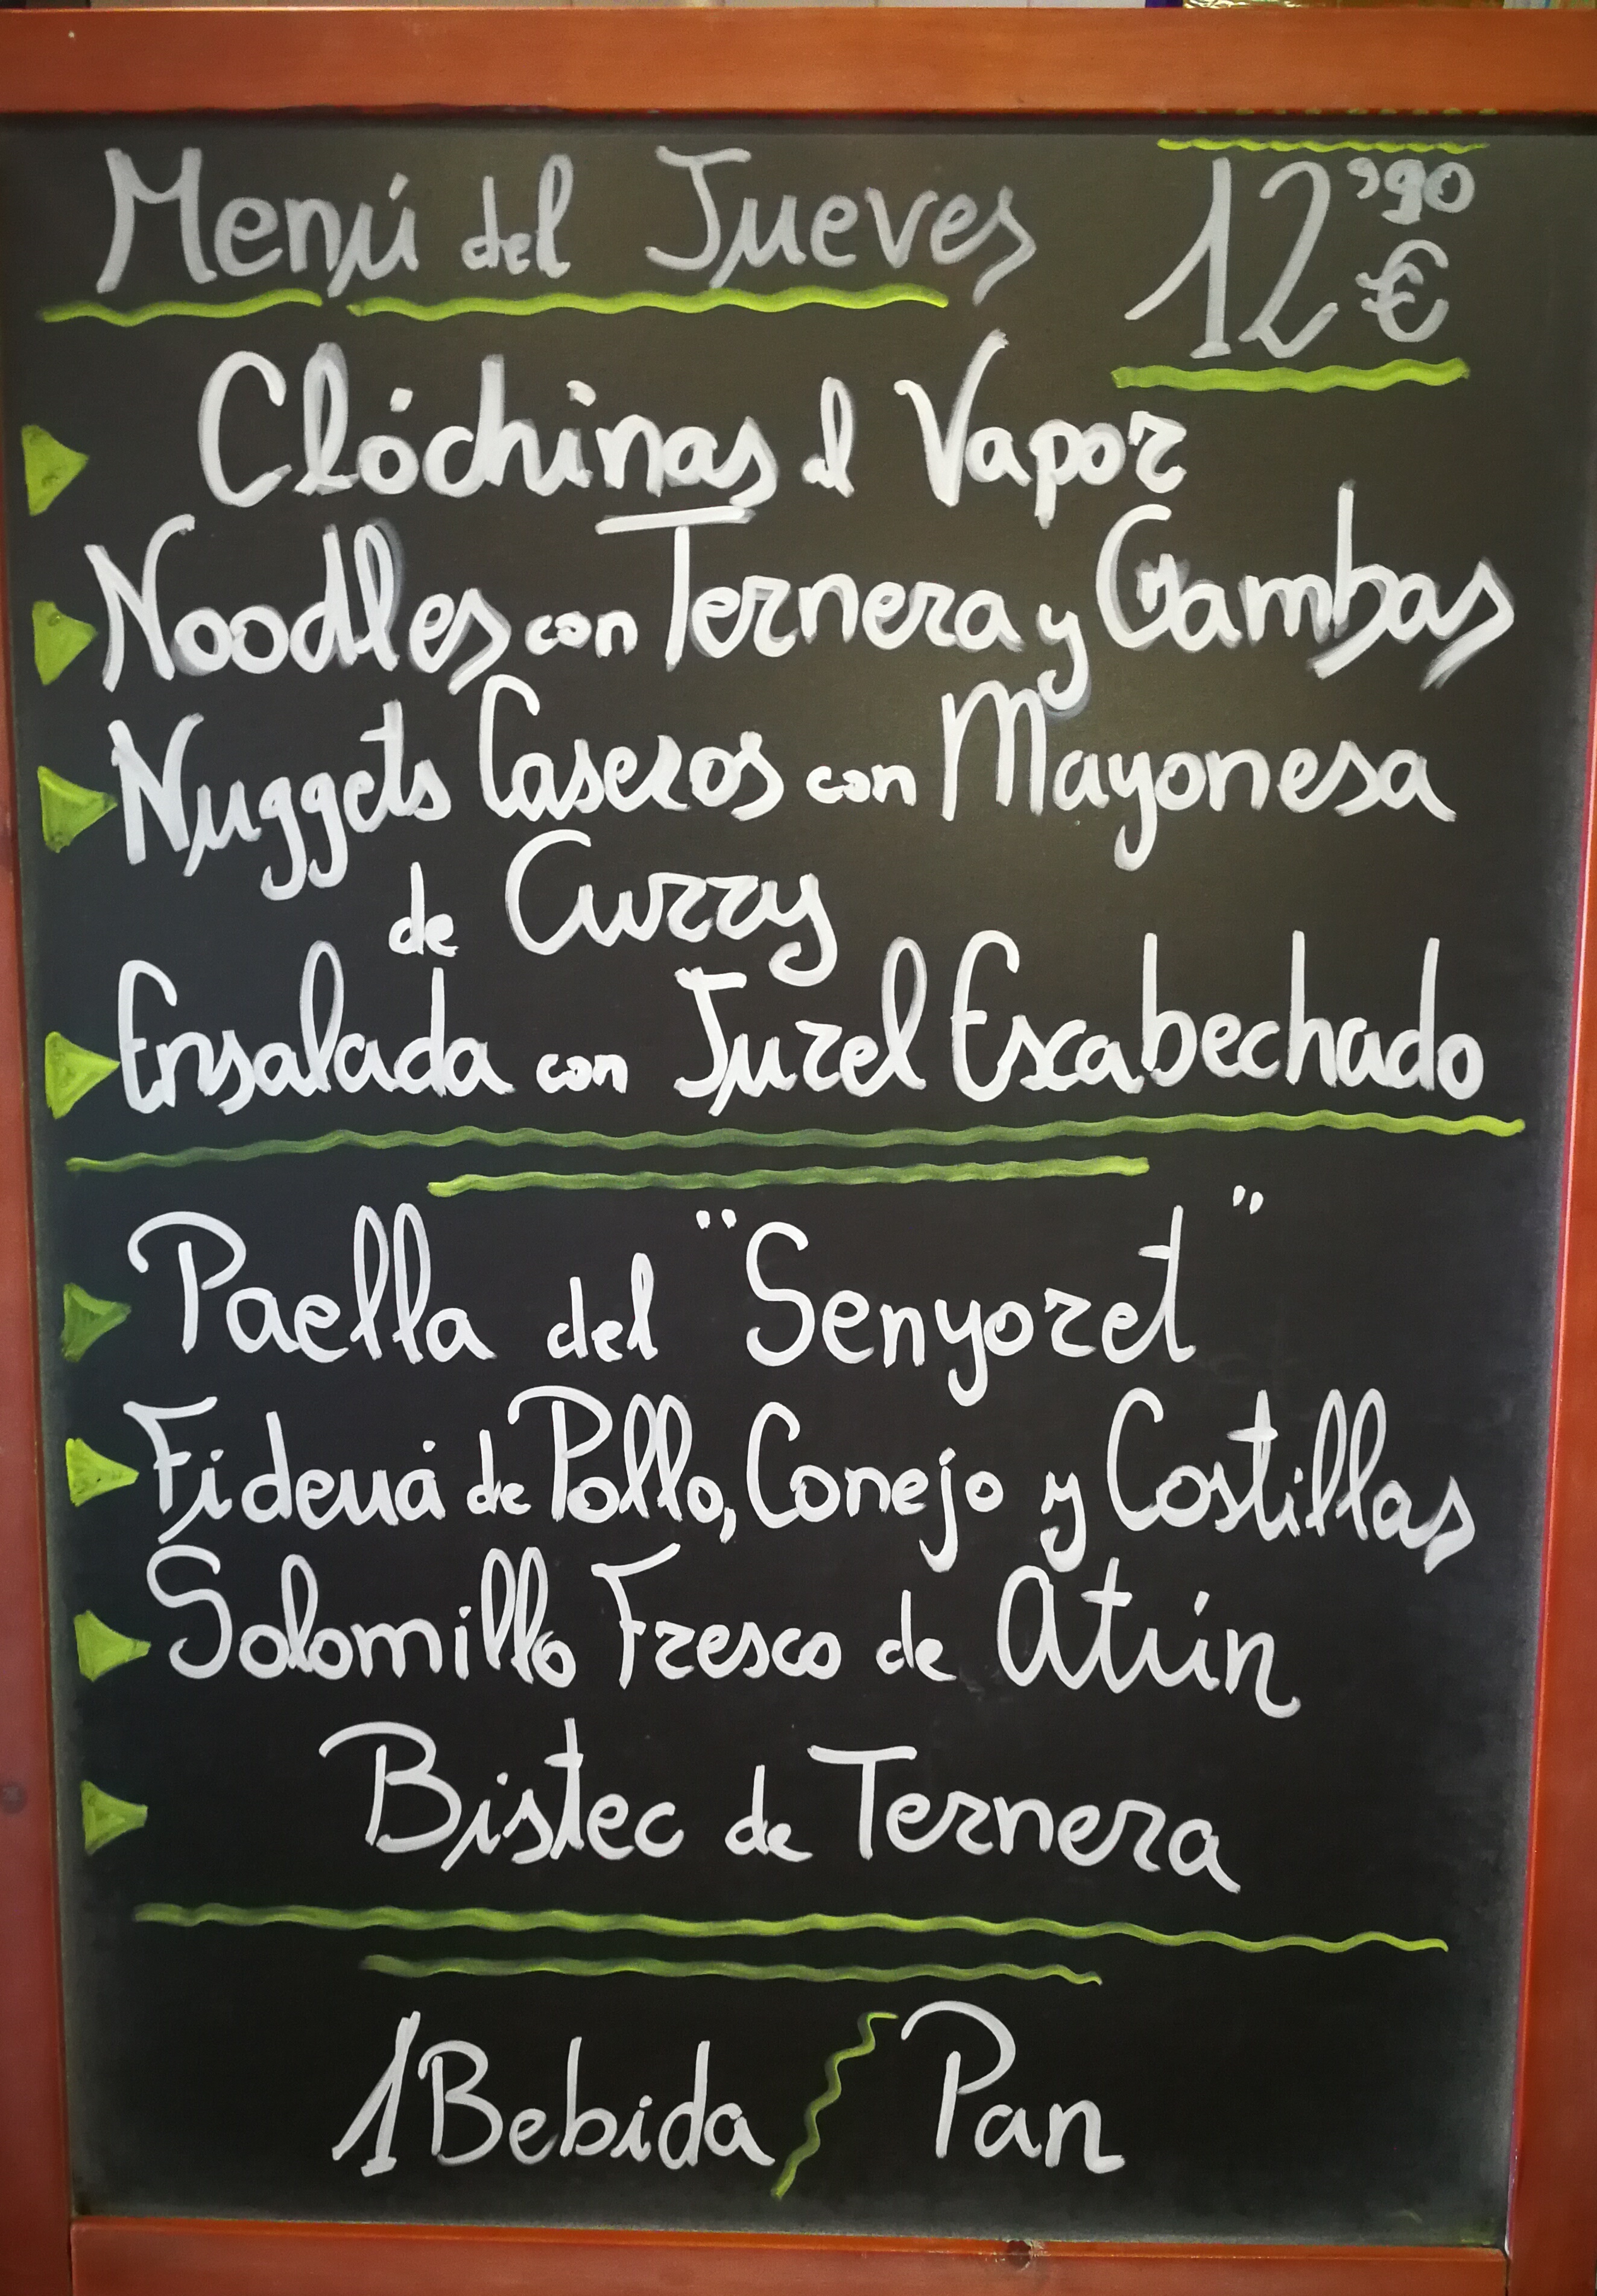 Menú del Jueves 12'90 €
Clóchinas al Vapor
Noodles con Ternera y Gambas
Nuggets Caseros con Mayonesa
de Curry
Ensalada con Jurel Escabechado
Paella del "Senyoret"
Fideuá de Pollo, Conejo y Costillas
Solomillo Fresco de Atún
Bistec de Ternera
1 Bebida / Pan